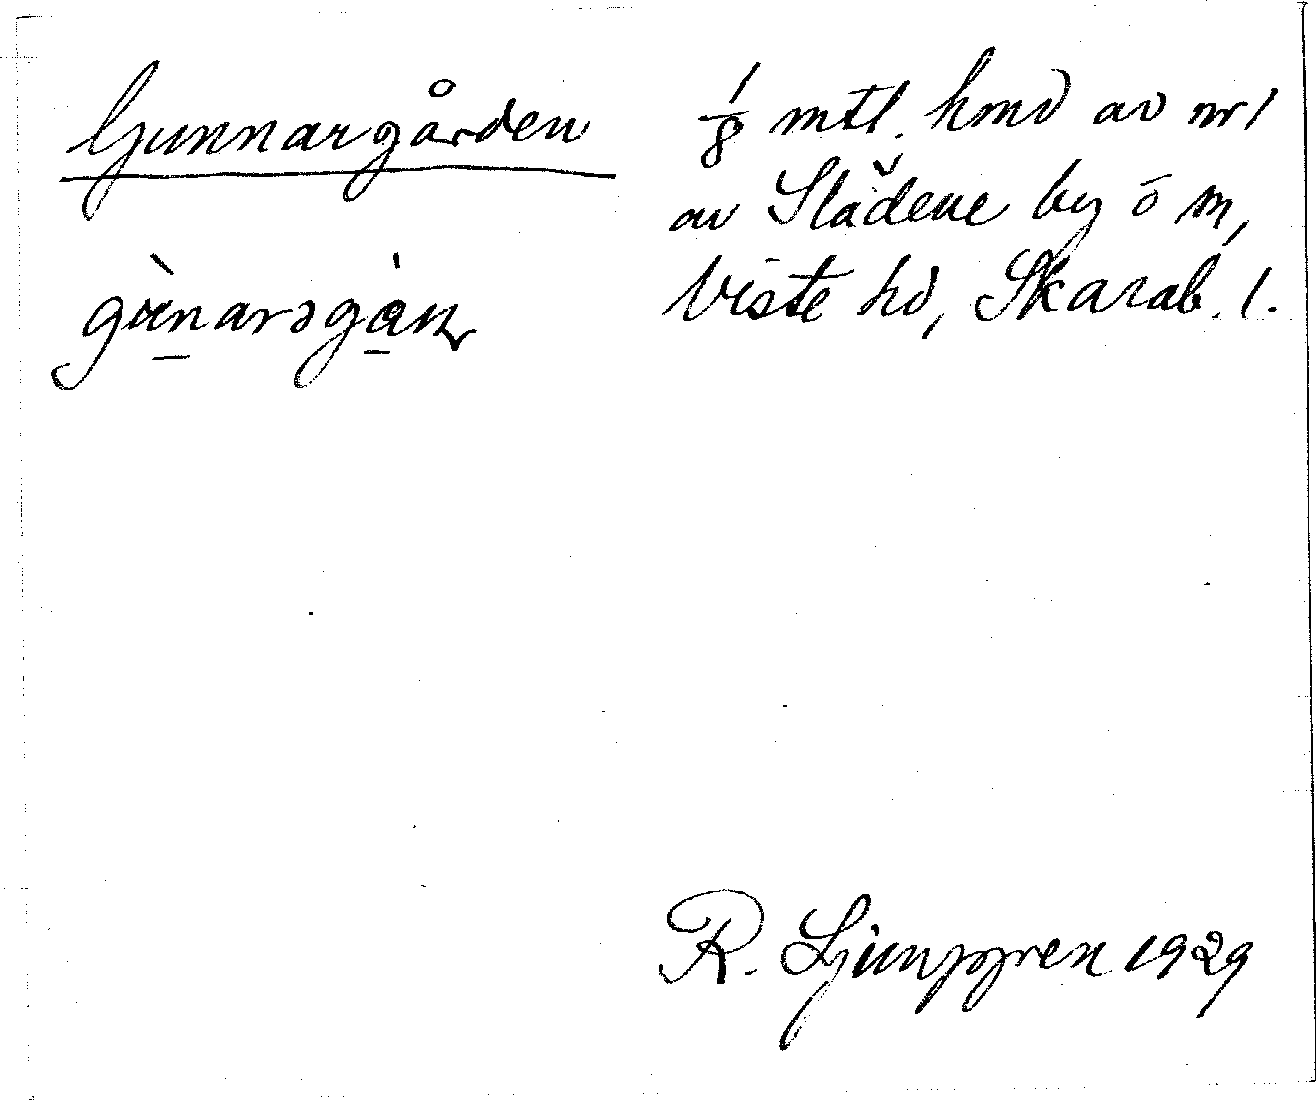 Gunnargården
1/8 mtl. hmd av nr 1
av Slädene by o m,
Viste hd, Skarab. l.
R. Ljunggren 1929